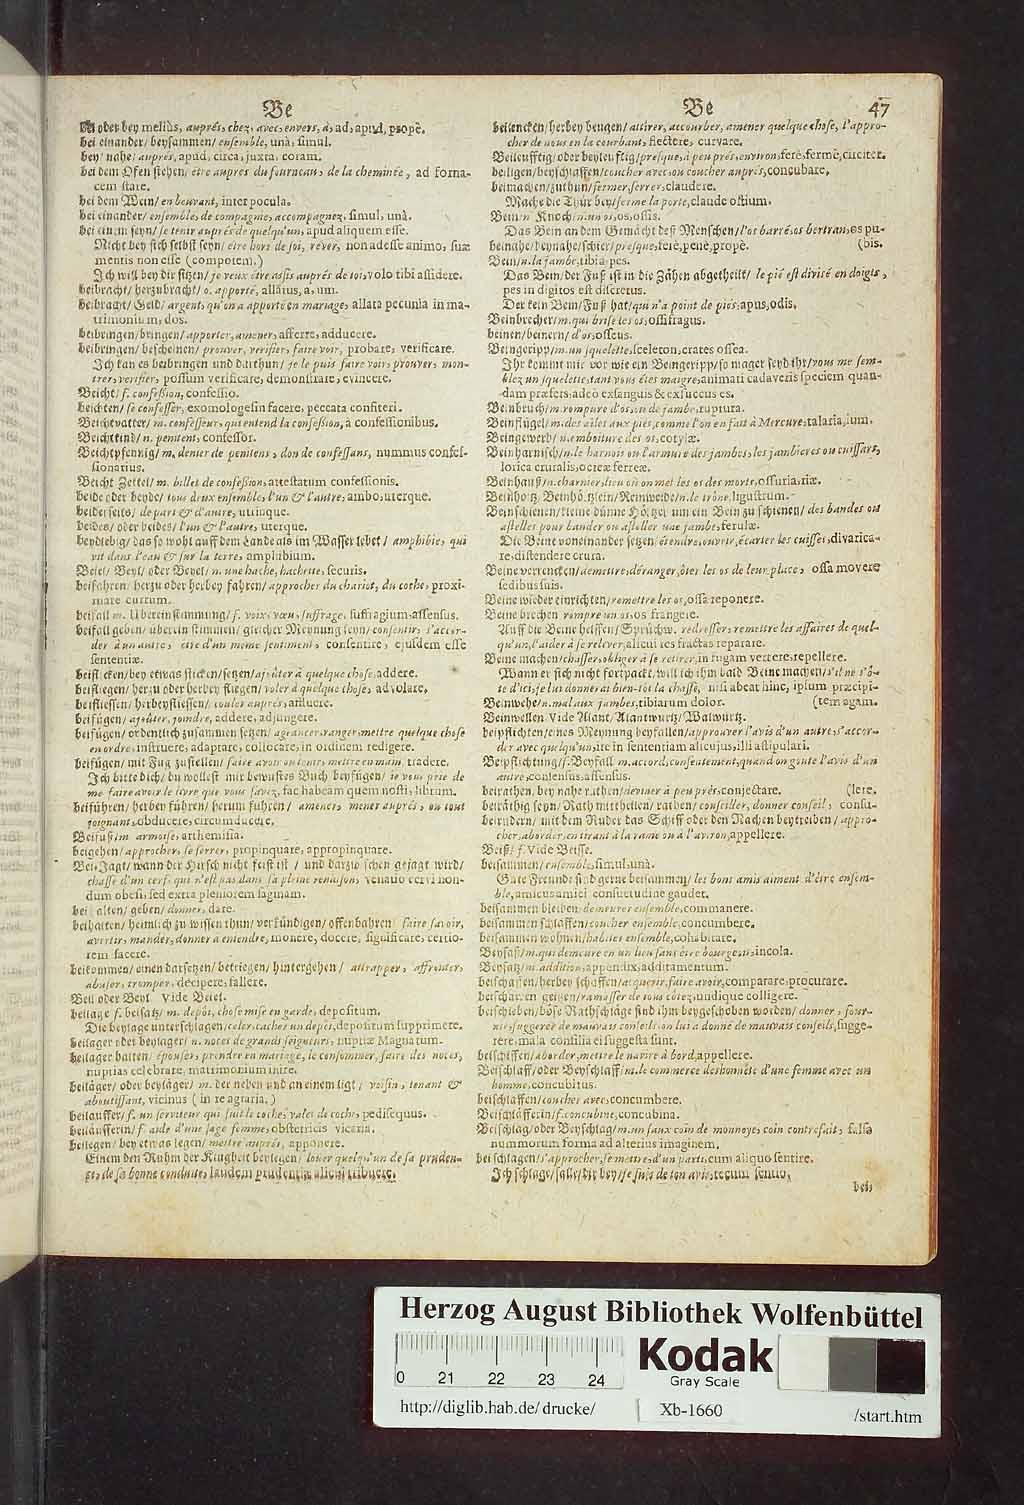 Be
Be
47
oder bey melius, auprés, chez, avec, envers, à, ad, apud, propè.
bei einander/ beysammen/ ensemble, unà, simul.
bey/ nahe/ auprés, apud, circa, juxta, coram.
bei dem Ofen stehen/ étre auprés du fourneau, de la cheminée, ad forna-
cem stare.
bei dem Wein/ en beuvant, inter pocula.
bei einander/ ensemble, de compagnie, accompagnez, simul, unà.
bei einem seyn/ se tenir auprés de quelqu'un, apud aliquem esse.
Nicht bey sich selbst seyn/ étre hors de soi, réver, non adesse animo, suæ
mentis non esse (compotem.)
Ich will bey dir sitzen/ je veux étre assis auprés de toi, volo tibi assidere.
beibracht/ herzubracht/ o. apporté, allatus, a, um.
beibracht/ Geld/ argent, qu'on a apporté en mariage, allata pecunia in ma-
trimonium, dos.
beibringen/ bringen/ apporter, amener, afferre, adducere.
beibringen/ bescheinen/ prouver, verifier, faire voir, probare, verificare.
Ich kan es beibringen und darthun/ je le puis faire voir, prouver, mon-
trer, verifier, possum verificare, demonstrare, evincere.
Beicht/ f. confession, confessio.
beichten/ se confesser, exomologesin facere, peccata confiteri.
Beichtvatter/ m. confesseur, qui entend la confession, à confessionibus.
Beichtkind/ n. penitent, confessor.
Beichtpfennig/ m. denier de penitens, don de confessans, nummus confes-
sionarius.
Beicht Zettel/ m. billet de confession, attestatum confessionis.
beide oder beyde/ tous deux ensemble, l'un & l'autre, ambo, uterque.
beiderseits/ de part & d'autre, utrinque.
beides/ oder beides/ l'un & l'autre, uterque.
beydlebig/ das so wohl auff dem Lande als im Wasser lebet/ amphibie, qui
vit dans l'eau & sur la terre, amphibium.
Beiel/ Beyl/ oder Beyel/ n. une hache, hachette, securis.
beifahren/ herzu oder herbey fahren/ approcher du chariot, du coche, proxi-
mare currum.
beifall m. Übereinstammung/ f. voix, vœu, suffrage, suffragium, assensus.
beifall geben/ überein stimmen/ gleicher Meynung seyn/ consentir, s'accor-
der à un autre, étre d'un méme sentiment, consentire, ejusdem esse
sententiæ.
beiflicken/ bey etwas flicken/ setzen/ ajoûter à quelque chose, addere.
beifliegen/ herzu oder herbey fliegen/ voler à quelque chose, advolare.
beifliessen/ herbeyfliessen/ couler auprés, affluere.
beifügen/ ajoûter, joindre, addere, adjungere.
beifügen/ ordentlich zusammen setzen/ agencer, ranger, mettre quelque chose
en ordre, instruere, adaptare, collocare, in ordinem redigere.
beifügen/ mit Fug zustellen/ faire avoir ou tenir, mettre en main, tradere.
Ich bitte dich/ du wollest mir bewustes Buch beyfügen/ je vous prie de
me faire avoir le livre que vous savez, fac habeam quem nosti, librum.
beiführen/ herbey führen/ herum führen/ amener, mener auprés, ou tout
joignant, obducere, circumducere.
Beifuß/ m armoise, arthemisia.
beigehen/ approcher, se serrer, propinquare, appropinquare.
Bei-Jagt/ wann der Hirsch nicht feist ist/ und darzwischen gejagt wird/
chasse d'un cerf, qui n'est pas dans sa pleine venaison, venatio cervi non-
dum obesi, sed extra pleniorem saginam.
beihalten/ geben/ donner, dare.
beihalten/ heimlich zu wissen thun/ verkündigen/ offenbahren/ faire savoir,
avertir, mander, donner à entendre, monere, docere, significare, certio-
rem facere.
beikommen/ einen darsetzen/ betriegen/ hintergehen/ attrapper, affronter,
abuser, tromper, decipere, fallere.
Beil oder Beyl. Vide Beiel.
beilage f. beisatz/ m. depôt, chose mise en garde, depositum.
Die beylage unterschlagen/ celer, cacher un depôt, depositum supprimere.
beilager oder beylager/ n. noces de grands seigneurs, nuptiæ Magnatum.
beilager halten/ épouser, prendre en mariage, le consommer, faire des noces,
nuptias celebrare, matrimonium inire.
beiläger/ oder beyläger/ m. der neben und an einem ligt/ voisin, tenant &
aboutissant, vicinus (in re agraria.)
beilauffer/ f. un serviteur qui suit le coche, valet de coche, pedisequus.
beiläufferin/ f. aide d'une sage femme, obstetricis vicaria.
beilegen/ bey etwas legen/ mettre auprés, apponere.
Einem den Ruhm der Klugheit beylegen/ louer quelqu'un de sa pruden-
ce, de sa bonne conduite, laudem prudentiæ alicui tribuere.
beilencken/ herbey beugen/ attirer, accourber, amener quelque chose, l'appro-
cher de nous en la courbant, flectere, curvare.
Beileufftig/ oder beyleuftig/ presque, à peu prés, environ, ferè, fermè, circiter.
beiligen/ beyschlaffen/ coucher avec, ou coucher auprés, concubare.
beimachen/ zuthun/ fermer, serrer, claudere.
Mache die Thür bey/ ferme la porte, claude ostium.
Bein/ n Knoch/ n. un os, os, ossis.
Das Bein an dem Gemächt deß Menschen/ l'os barré, os bertran, os pu-
beinahe/ beynahe/ schier/ presque, ferè, penè, propè. (bis.
Bein/ n. la jambe, tibia, pes.
Das Bein/ der Fuß ist in die Zähen abgetheilt/ le pié est divisé en doigts,
pes in digitos est discretus.
Der kein Bein/ Fuß hat/ qui n'a point de pies, apus, odis.
Beinbrecher/ m. qui brise les os, ossifragus.
beinen/ beinern/ d'os, osseus.
Beingeripp/ m. un squelette, sceleton, crates ossea.
Ihr kommt mir vor wie ein Beingeripp/ so mager seyd ihr/ vous me sem-
blez un squelette, tant vous étes maigre, animati cadaveris speciem quan-
dam præfers, adeò exsanguis & exsuccus es.
Beinbruch/ m. rompure d'os, ou de jambe, ruptura.
Beinflügel/ m. des ailes aux piés, comme l'on en fait à Mercure, talaria, ium.
Beingewerb/ n. emboiture des os, cotylæ.
Beinharnisch/ n. le harnois ou l'armure des jambes, les jambieres ou cuissars,
lorica cruralis, ocreæ ferreæ.
Beinhauß/ n. charnier, lieu où on met les os des morts, ossuria, riæ.
Beinholtz, Beinhöltzlein/ Reinweide/ n. le trône, ligustrum.
Beinschienen/ kleine dünne Höltzer um ein Bein zu schienen/ des bandes ou
astelles pour bander ou asteller une jambe, ferulæ.
Die Beine voneinander setzen/ étendre, ouvrir, écarter les cuisses, divarica-
re, distendere crura.
Beine verrencken/ demettre, déranger, ôter les os de leur place, ossa movere
sedibus suis.
Beine wieder einrichten/ remettre les os, ossa reponere.
Beine brechen rompre un os, os frangere.
Auff die Beine helffen/ Sprüchw. redresser, remettre les affaires de quel-
qu'un, l'aider à se relever, alicui res fractas reparare.
Beine machen/ chasser, obliger à se retirer, in fugam vertere, repellere.
Wann er sich nicht fortpackt/ will ich ihm bald Beine machen/ s'il ne s'ô-
te d'ici, je lui donnerai bien-tôt la chasse, nisi abeat hinc, ipsum præcipi-
Beinwehe/ n. mal aux jambes, tibiarum dolor. (tem agam.
Beinwellen Vide Alant/ Alantwurtz/ Walwurtz.
beipflichten/ eines Meynung beyfallen/ approuver l'avis d'un autre, s'accor-
der avec quelqu'un, ire in sententiam alicujus, illi astipulari.
Beipflichtung/ f. Beyfall m. accord, consentement, quand on goute l'avis d'un
autre, consensus, assensus.
beirathen/ bey nahe rathen/ deviner à peu prés, conjectare. (lere.
beiräthig seyn/ Rath mittheilen/ rathen/ conseiller, donner conseil, consu-
beirudern/ mit dem Ruder das Schiff oder den Nachen beytreiben/ appro-
cher, aborder, en tirant à la rame ou à l'aviron, appellere.
Beiß/ f. Vide Beisse.
beisammen/ ensemble, simul, unà.
Gute Freunde sind gerne beisammen/ les bons amis aiment d'étre ensem-
ble, amicus amici consuetudine gaudet.
beisammen bleiben/ demeurer ensemble, commanere.
beisammen schlaffen/ coucher ensemble, concumbere.
beisammen wohnen/ habiter ensemble, cohabitare.
Beysaß/ m. qui demeure en un lieu sans étre bourgeois, incola.
Beysatz/ m. addition, appendix, additamentum.
beischaffen/ herbey schaffen/ acquerir, faire avoir, comparare, procurare.
beischarren geitzen/ ramasser de tous côtez, undique colligere.
beischieben/ böse Rathschläge sind ihm beygeschoben worden/ donner, four-
nir, suggerer de mauvais conseils, on lui a donné de mauvais conseils, sugge-
rere, mala consilia ei suggesta sunt.
beischiffen/ aborder, mettre le navire à bord, appellere.
Beischlaff/ oder Beyschlaff/ m. le commerce deshonnéte d'une femme avec un
homme, concubitus.
beischlaffen/ coucher avec, concumbere.
Beischläfferin/ f. concubine, concubina.
Beischlag/ oder Beyschlag/ m. un faux coin de monnoye, coin contrefait, falsa
nummorum forma ad alterius imaginem.
bei schlagen/ s'approcher, se mettre, d'un parti, cum aliquo sentire.
Ich schlage/ falle/ dir bey/ je suis de ton avis, tecum sentio.
bei,
Herzog August Bibliothek Wolfenbüttel
Kodak
Gray Scale
0 21 22 23 24
http://diglib.hab.de/drucke/ Xb-1660 /start.htm